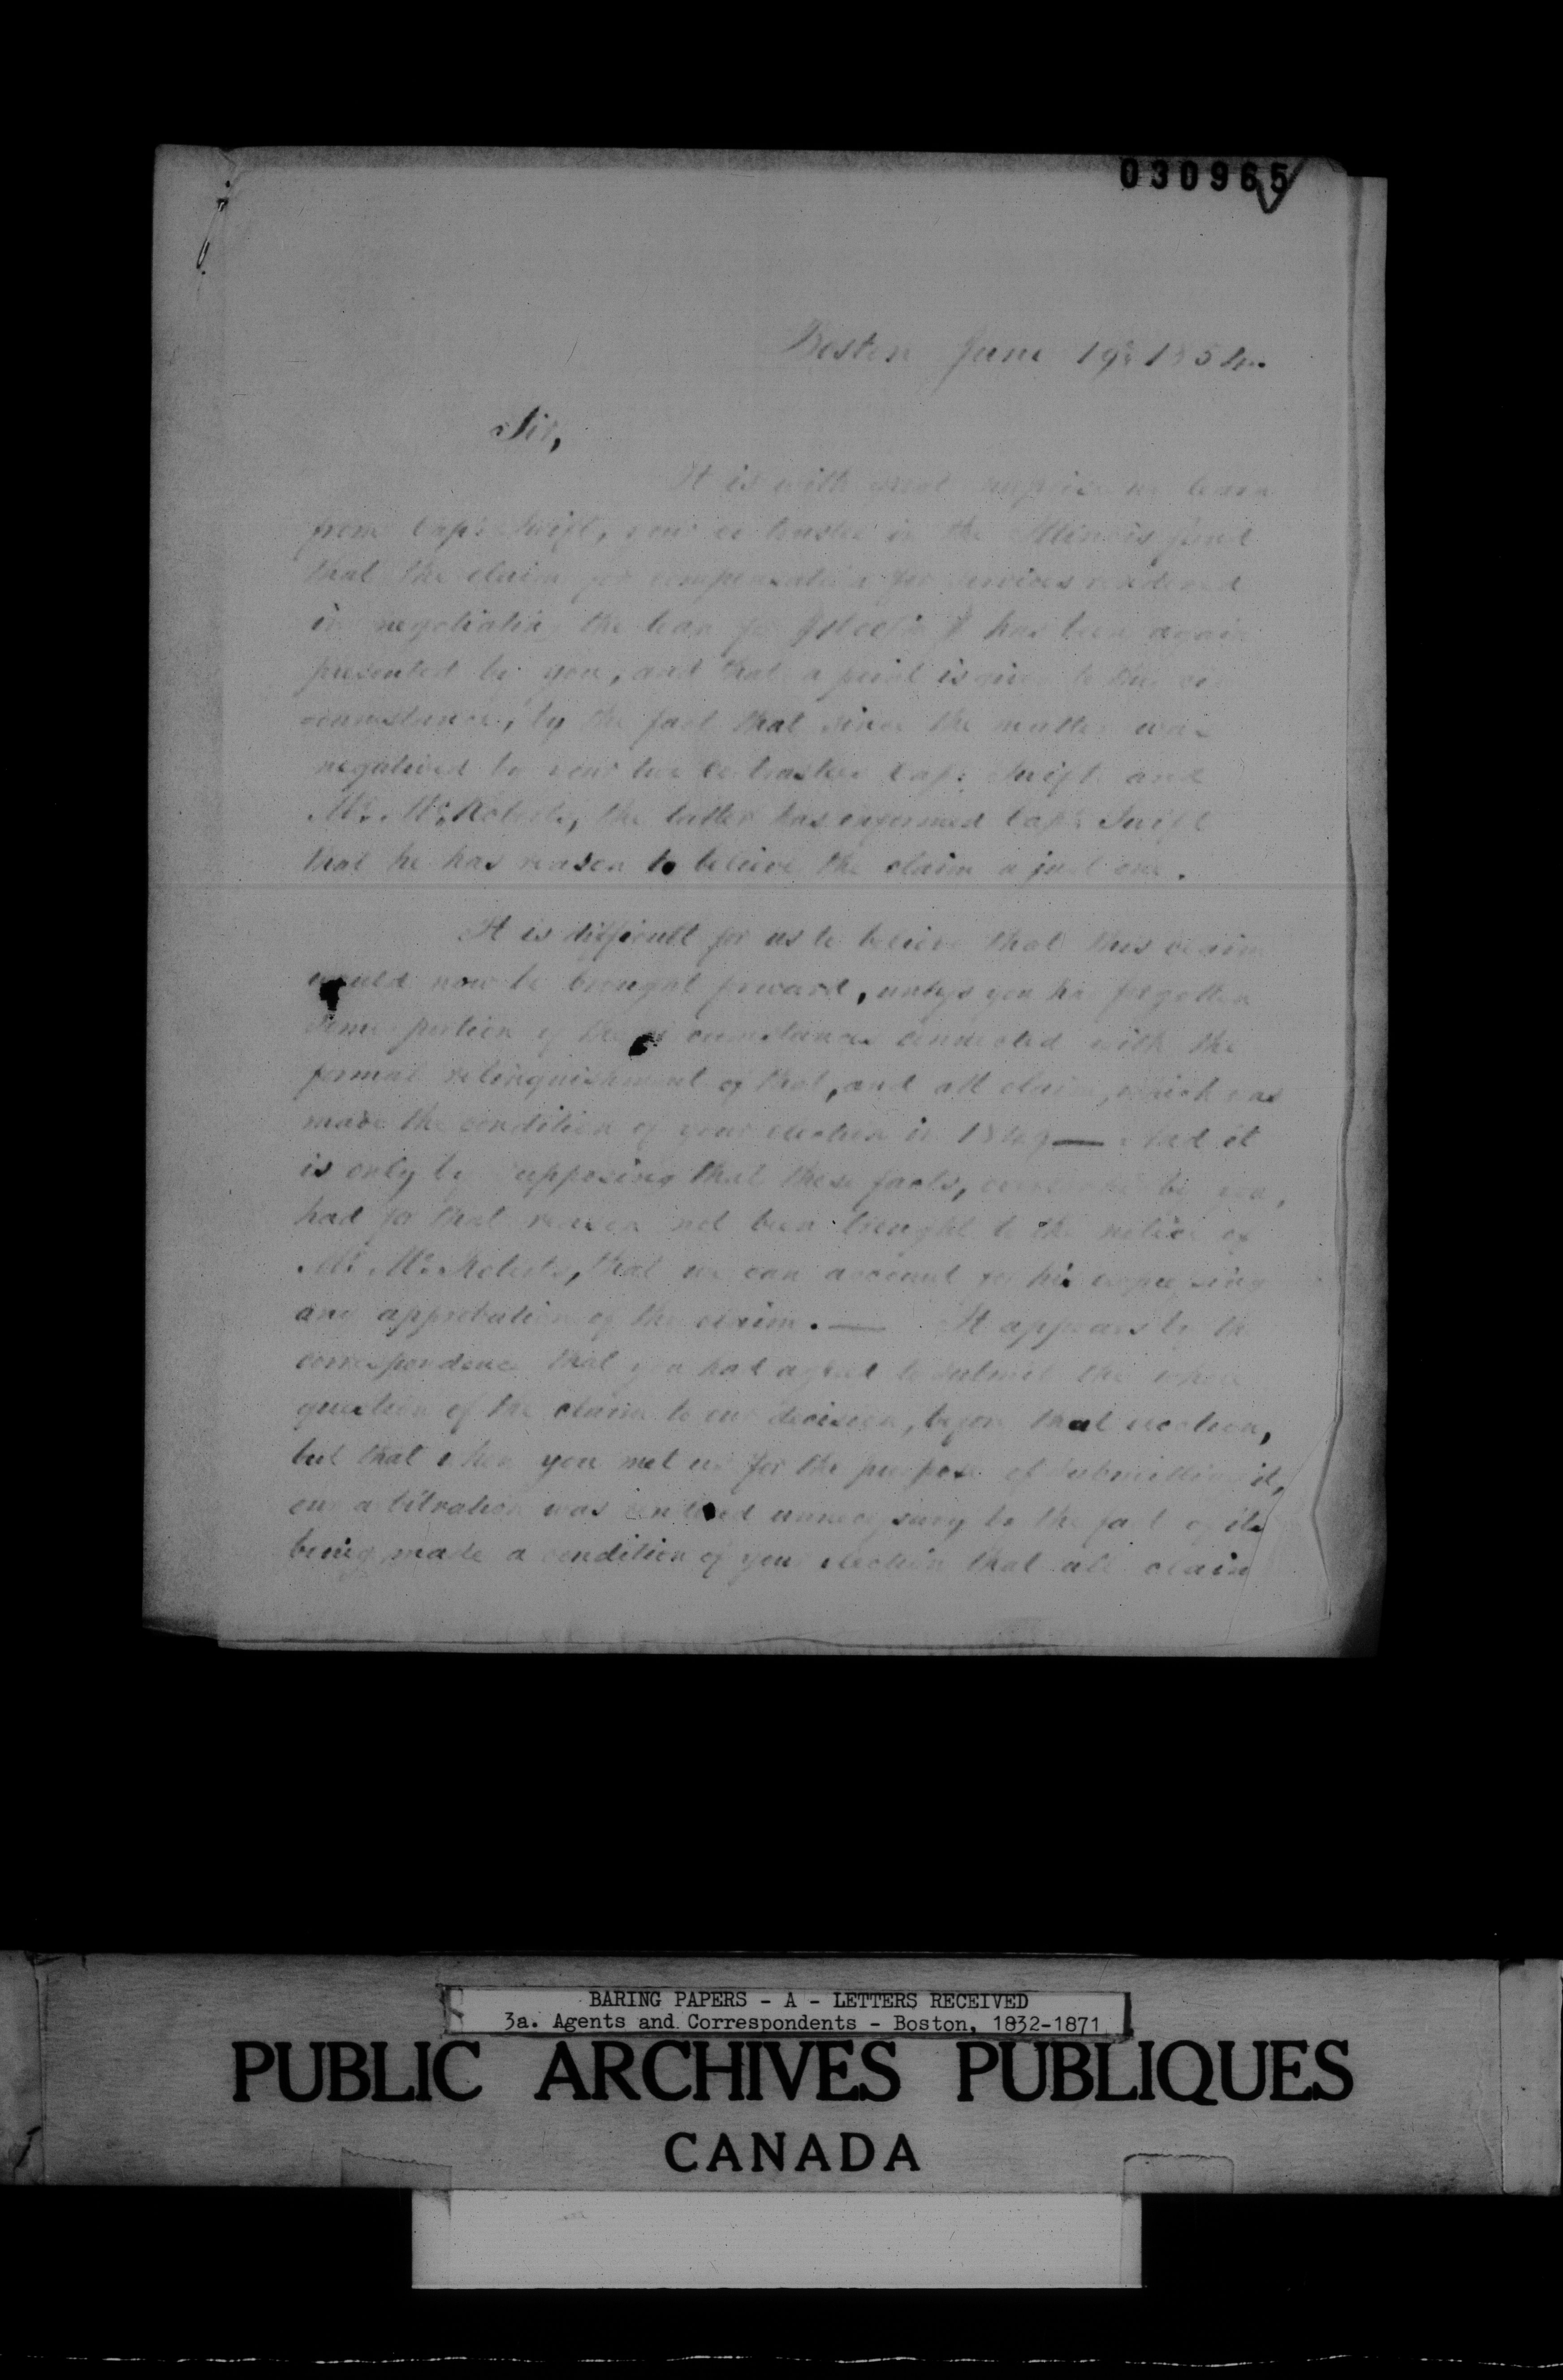 030965
Boston June 19th 1854.
Sir,
It is with great surprise we learn
from Capt. Swift, your co trustee in the Illinois fund
that the claim for compensation for services rendered
in negotiating the loan has been again
presented by you, and that a point is given to the cir-
cumstance, by the fact that since the matter was
negatived by your two Co trustees Capt. Swift and
Mr. McRoberts, the latter has informed Capt. Swift
that he has reason to believe the claim a just one.
It is difficult for us to believe that this claim
would now be brought forward, unless you had forgotten
some portion of the circumstances connected with the
formal relinquishment of that, and all claim, which was
made the condition of your election in 1849 — And it
is only by supposing that these facts, by you,
had for that reason not been brought to the notice of
Mr. McRoberts, that we can account for his expressing
any approbation of the claim. — It appears by the
correspondence that you had agreed to submit the whole
question of the claim to our decision, before that election,
but that when you met us for the purpose of submitting it,
our arbitration was rendered unnecessary by the fact of its
being made a condition of your election that all claim
BARING PAPERS - A - LETTERS RECEIVED
3a. Agents and Correspondents - Boston, 1832-1871
PUBLIC ARCHIVES PUBLIQUES
CANADA